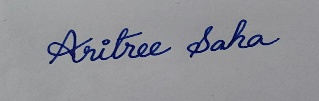 Aritree Saha